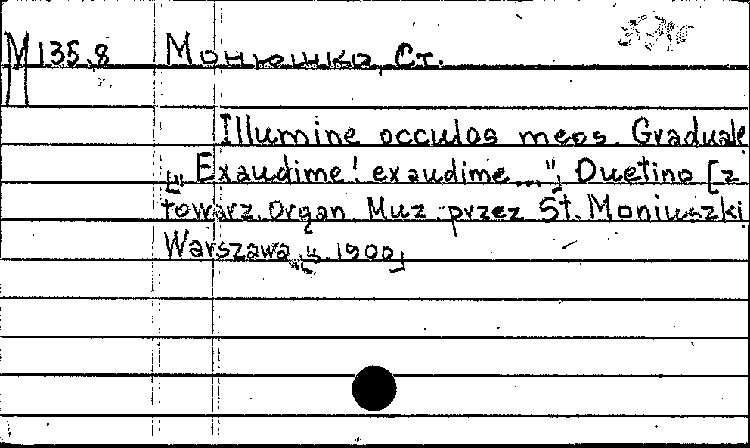 М 135,8 Монюшко, Ст.
Illumine occulos meos. Graduale
„Exaudime! exaudime..." Duetino [z
towarz. Organ Muz przez St. Moniuszki
Warszawa, 1900]